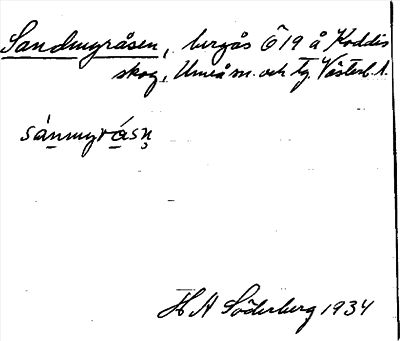 Sandmyråsen, bergås Ö 19 å Koddis
skog, Umeå m. och tg. Västerb. l.
sánmyrásn̥
H A Söderberg 1934